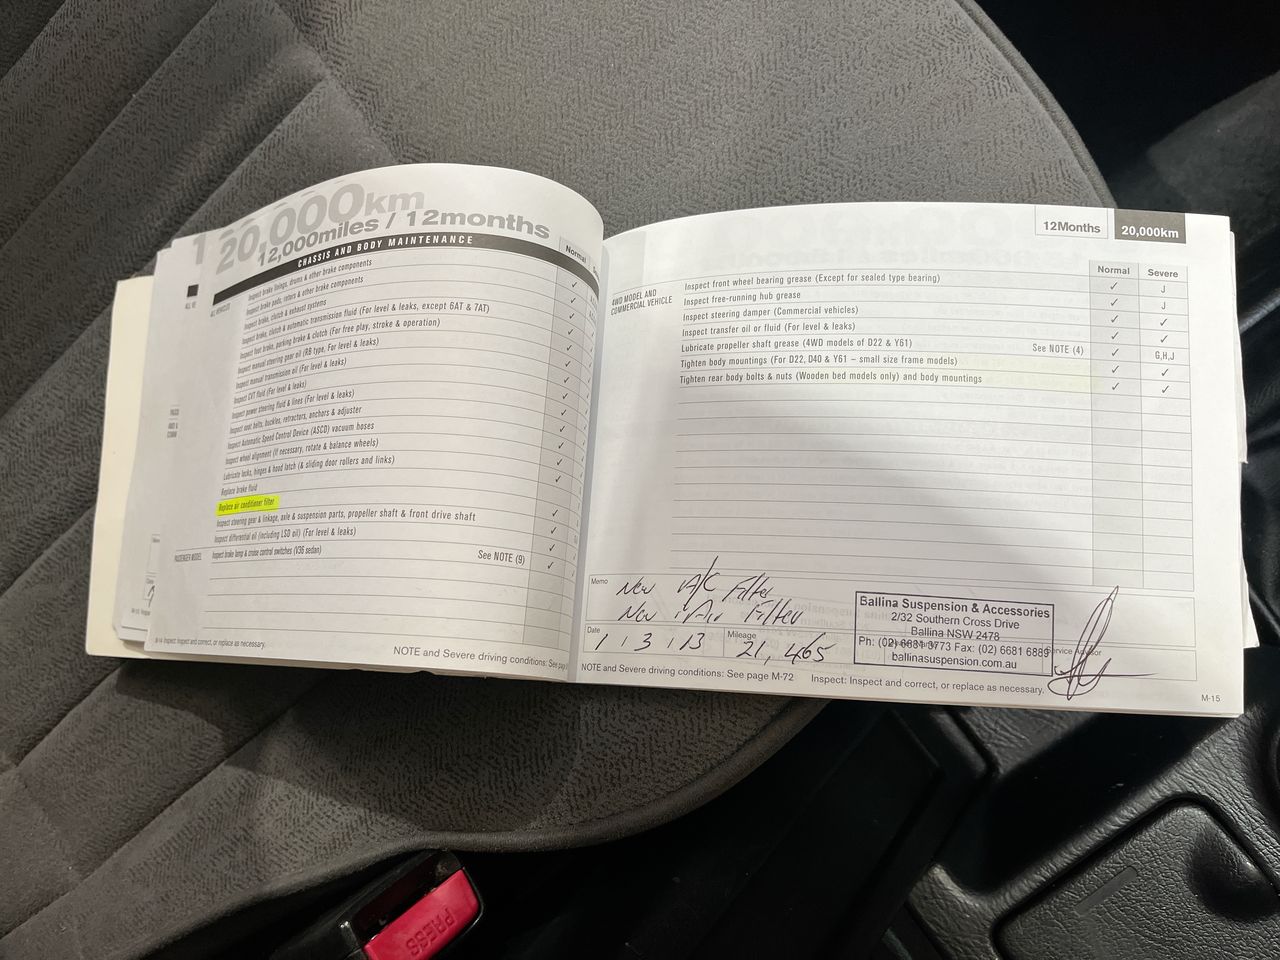 20,000km
12,000miles / 12months
CHASSIS AND BODY MAINTENANCE
Normal
ALL VEHICLES
Inspect brake linings, drums & other brake components ✓
Inspect brake pads, rotors & other brake components ✓
Inspect brake, clutch & exhaust systems ✓
Inspect brake, clutch & automatic transmission fluid (For level & leaks, except 6AT & 7AT) ✓
Inspect foot brake, parking brake & clutch (For free play, stroke & operation) ✓
Inspect manual steering gear oil (RB type, For level & leaks) ✓
Inspect manual transmission oil (For level & leaks) ✓
Inspect CVT fluid (For level & leaks) ✓
Inspect power steering fluid & lines (For level & leaks) ✓
Inspect seat belts, buckles, retractors, anchors & adjuster ✓
Inspect Automatic Speed Control Device (ASCD) vacuum hoses ✓
Inspect wheel alignment (If necessary, rotate & balance wheels) ✓
Lubricate locks, hinges & hood latch (& sliding door rollers and links) ✓
Replace brake fluid
Replace air conditioner filter
Inspect steering gear & linkage, axle & suspension parts, propeller shaft & front drive shaft ✓
Inspect differential oil (including LSD oil) (For level & leaks) ✓
PASSENGER MODEL
Inspect brake lamp & cruise control switches (V36 sedan) See NOTE (9) ✓
M-14 Inspect: Inspect and correct, or replace as necessary.
NOTE and Severe driving conditions: See page
12Months 20,000km
Normal Severe
4WD MODEL AND
COMMERCIAL VEHICLE
Inspect front wheel bearing grease (Except for sealed type bearing) ✓ J
Inspect free-running hub grease ✓ J
Inspect steering damper (Commercial vehicles) ✓ ✓
Inspect transfer oil or fluid (For level & leaks) ✓ ✓
Lubricate propeller shaft grease (4WD models of D22 & Y61) See NOTE (4) ✓ G,H,J
Tighten body mountings (For D22, D40 & Y61 – small size frame models) ✓ ✓
Tighten rear body bolts & nuts (Wooden bed models only) and body mountings ✓ ✓
Memo
New A/C Filter
New Air Filter
Date
1 / 3 / 13
Mileage
21,465
Ballina Suspension & Accessories
2/32 Southern Cross Drive
Ballina NSW 2478
Ph: (02) 6681 3773 Fax: (02) 6681 6889
ballinasuspension.com.au
Service Advisor
NOTE and Severe driving conditions: See page M-72 Inspect: Inspect and correct, or replace as necessary.
M-15
PRESS